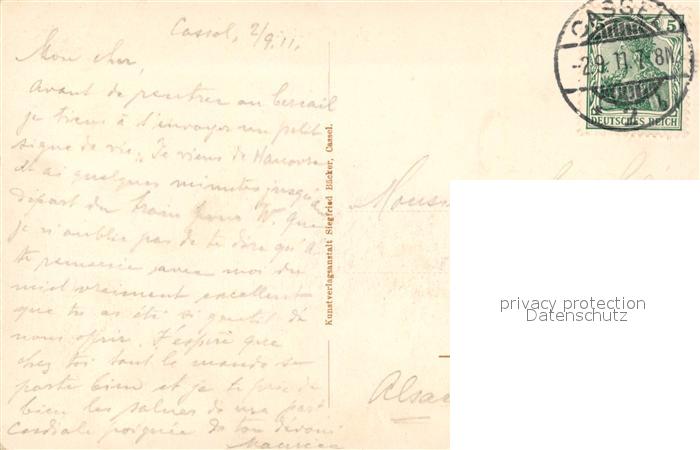 Cassel, 2/9.11.
Mon cher,
Avant de rentrer au bercail
je tiens à t'envoyer un petit
signe de vie. Je viens de Hanovre
et ai quelques minutes jusqu'au
départ du train pour W. Que
je n'oublie pas de te dire qu'on
te remercie avec moi du
miel vraiment excellent
que tu as été si gentil de
nous offrir. J'espère que
chez toi tout le monde se
porte bien et je te prie de
bien les saluer de ma part
Cordiale poignée de ton dévoué
Maurice
Kunstverlagsanstalt Siegfried Bücker, Cassel.
CASSEL
-2.9.11.7-8N.
5
DEUTSCHES REICH
Monsieur
Alsa
privacy protection
Datenschutz